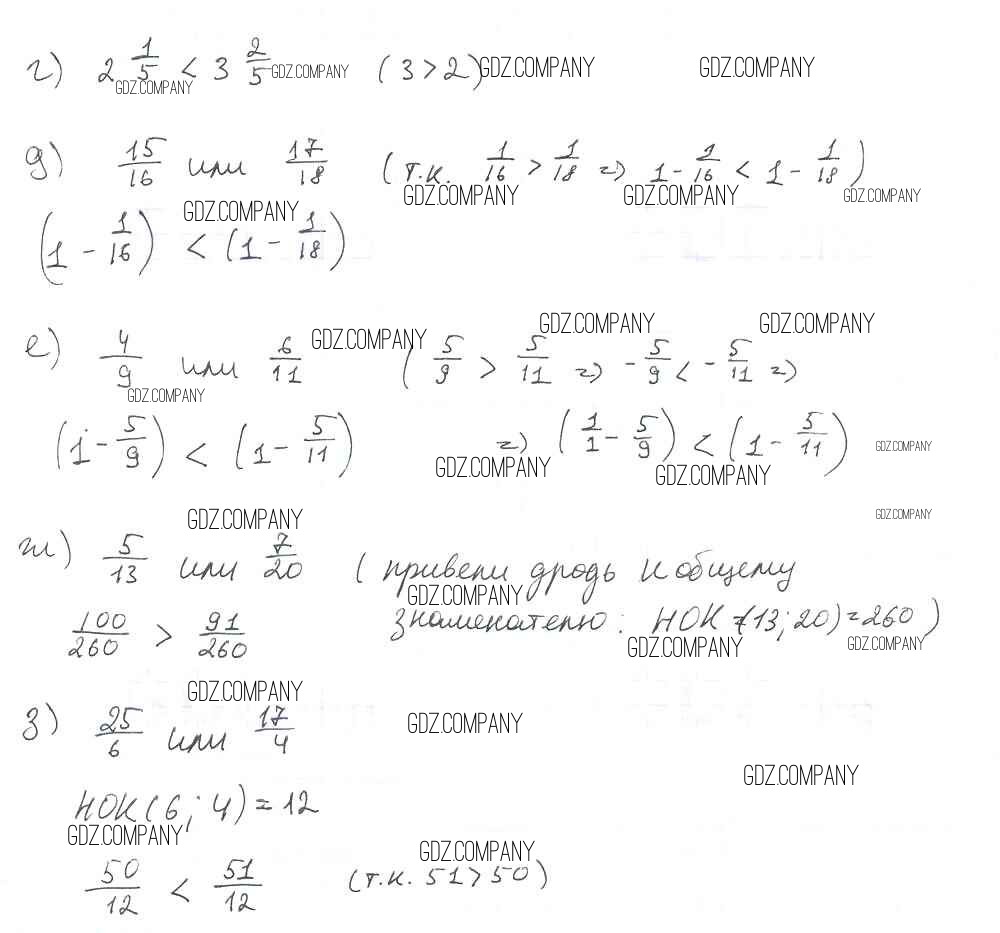 г) 2 1/5 < 3 2/5 (3 > 2)
GDZ.COMPANY GDZ.COMPANY GDZ.COMPANY GDZ.COMPANY
д) 15/16 или 17/18 (т.к. 1/16 > 1/18 => 1 - 1/16 < 1 - 1/18)
GDZ.COMPANY GDZ.COMPANY GDZ.COMPANY GDZ.COMPANY
(1 - 1/16) < (1 - 1/18)
GDZ.COMPANY GDZ.COMPANY GDZ.COMPANY
е) 4/9 или 6/11 (5/9 > 5/11 => - 5/9 < - 5/11 =>
GDZ.COMPANY
(1 - 5/9) < (1 - 5/11) => (1/1 - 5/9) < (1 - 5/11)
GDZ.COMPANY GDZ.COMPANY GDZ.COMPANY
GDZ.COMPANY GDZ.COMPANY
ж) 5/13 или 7/20 (привели дродь к общему
GDZ.COMPANY
100/260 > 91/260 знаменателю: НОК (13; 20) = 260)
GDZ.COMPANY GDZ.COMPANY
GDZ.COMPANY
з) 25/6 или 17/4
GDZ.COMPANY
GDZ.COMPANY
НОК (6; 4) = 12
GDZ.COMPANY
GDZ.COMPANY
50/12 < 51/12 (т.к. 51 > 50)